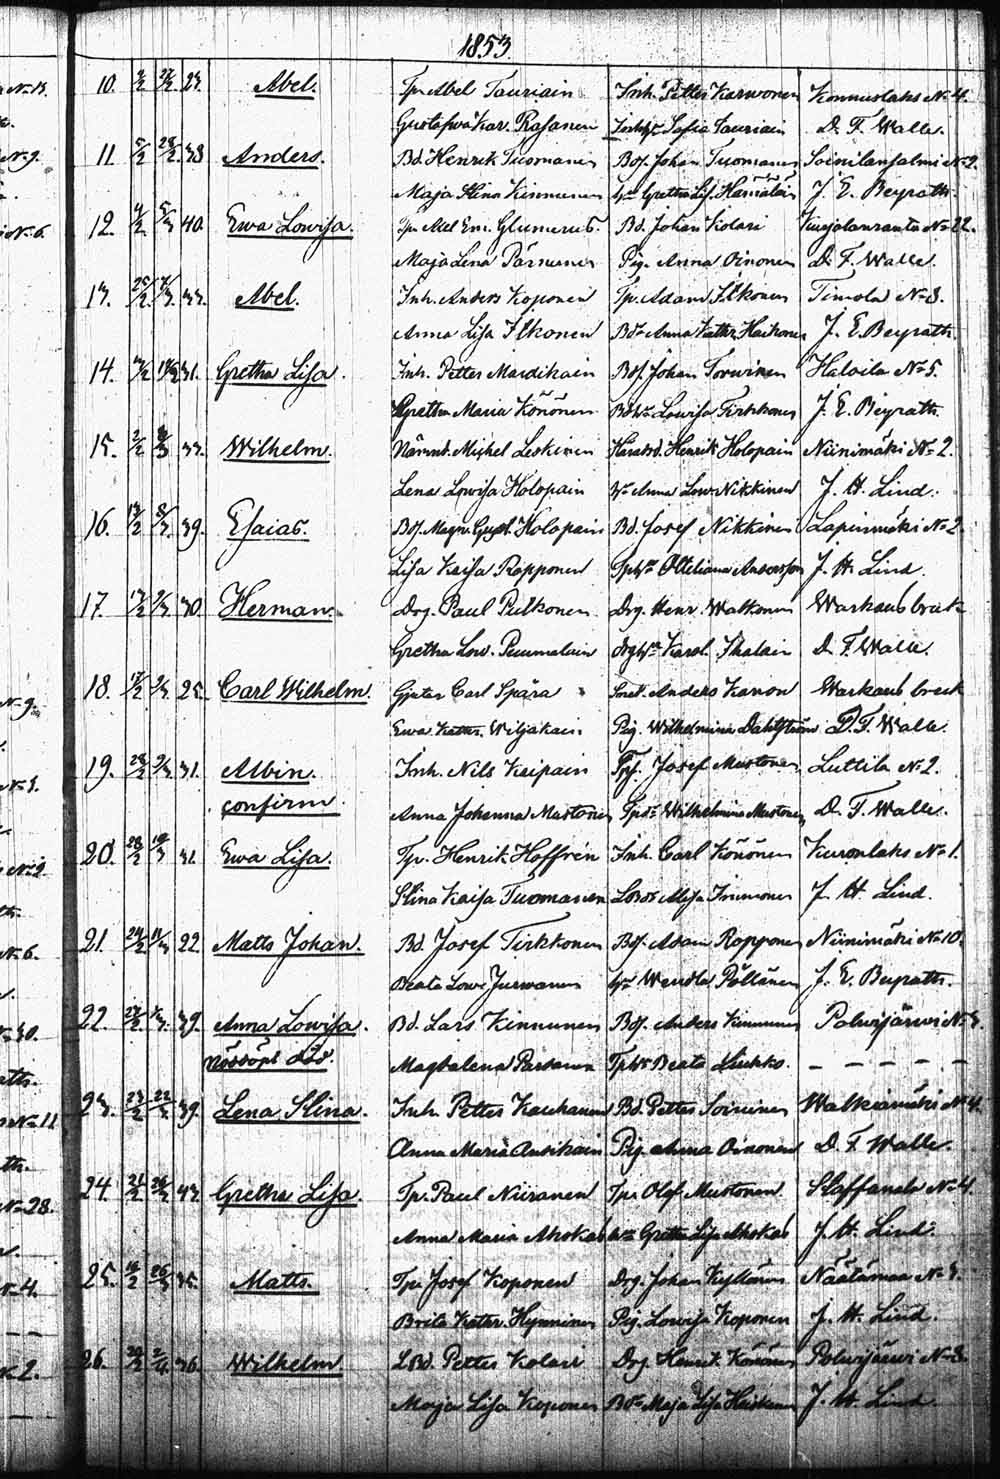 1853.
10. 2/2 27/2 23 Abel. Tp. Abel Tauriain Inh. Petter Karwonen Konnuslaks No 4.
Gustafwa Kar. Räsänen Inhhu Sofia Tauriain D. F. Walle.
11. 5/2 28/2 38 Anders. Bd. Henrik Tuomanen Bds. Johan Tuomanen Soinilansalmi No 2.
Maja Stina Kinnunen hu Gretha Lis. Hämäläin J. E. Beyrath.
12. 4/2 5/3 40. Ewa Lowisa. Maja Lena Pärnänen Bd. Johan Kolari Kurjalanranta No 22.
Pig. Anna Oinonen D. F. Walle.
13. 25/2 33. Abel. Inh. Anders Koponen Tp. Adam Ilkonen Timola No 3.
Anna Lisa Ilkonen Bdr Anna Kathr. Haikonen J. E. Beyrath.
14. 31. Gretha Lisa. Inh. Petter Mardikain Bds. Johan Torwinen Haloila No 5.
Gretha Maria Könönen Bdhu Lowisa Tirkkonen J. E. Beyrath.
15. 33. Wilhelm. Nämnd. Michel Leskinen Häradsd. Henrik Holopain Niinimäki No 2.
Lena Lowisa Holopain hu Anna Low. Nikkinen J. H. Lind.
16. 13/2 8/3 39. Esaias. Bds. Magn. Gust. Holopain Bd. Josef Nikkinen Lapinmäki No 2.
Lisa Kaisa Ropponen Tphu Otteliana Andersson J. H. Lind.
17. 30. Herman. Drg. Paul Pulkonen Drg. Henr. Watkonen Warkaus bruk
Gretha Low. Puumalain drghu Karol. Ikalain D. F. Walle.
18. 17/2 25. Carl Wilhelm. Gjutar Carl Spåra Smel. Anders Kanon Warkaus bruk
Ewa Kathr. Wiljakain Pig. Wilhelmina Dahlström D. F. Walle.
19. 31. Albin. Inh. Nils Kaipain Tps. Josef Mustonen Luttila No 2.
confirm. Anna Johanna Mustonen Tpdr Wilhelmina Mustonen D. F. Walle.
20. 28/2 31. Ewa Lisa. Tp. Henrik Hoffrén Inh. Carl Könönen Kuronlaks No 1.
Stina Kaisa Tuomanen J. H. Lind.
21. 24/2 11/3 22. Matts Johan. Bd. Josef Tirkkonen Bds. Adam Ropponen Niinimäki No 10.
Beata Lowi. Jurwanen hu Wendla Pöllänen J. E. Beyrath.
22. 39. Anna Lowisa. Bd. Lars Kinnunen Bds. Anders Kinnunen Polwijärwi No 3.
Nöddöpt död. Magdalena Partanen Tphu Beata Liukko. – – – – –
23. 23/2 22/3 39. Lena Stina. Inh. Petter Kauhanen Bd. Petter Soininen Walkiamäki No 4.
Anna Maria Ansikain Pig. Anna Oinonen D. F. Walle.
24. 21/2 26/3 43. Gretha Lisa. Tp. Paul Niiranen Tp. Olof Mustonen Staffanala No 4.
Anna Maria Ahokas hu Gretha Lisa Ahokas J. H. Lind.
25. 16/2 26/3 35. Matts. Tp. Josef Koponen Drg. Johan Kyllönen Näätämaa No 3.
Brita Kathr. Hynninen Pig. Lowisa Koponen J. H. Lind.
26. 36. Wilhelm. LBd. Petter Kolari Drg. Henrik Könönen Polwijärwi No 3.
Maja Lisa Koponen Bdr Maja Lisa Heiskanen J. H. Lind.